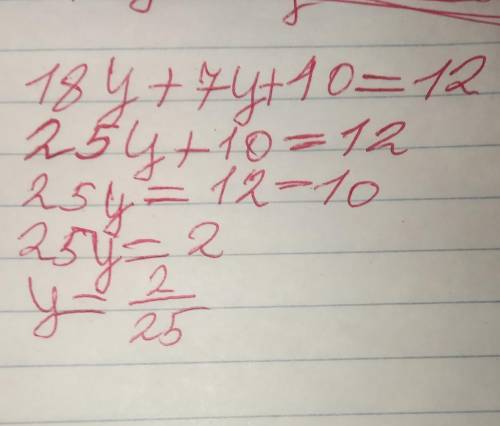 18y+7y+10=12
25y+10=12
25y=12-10
25y=2
y=2/25